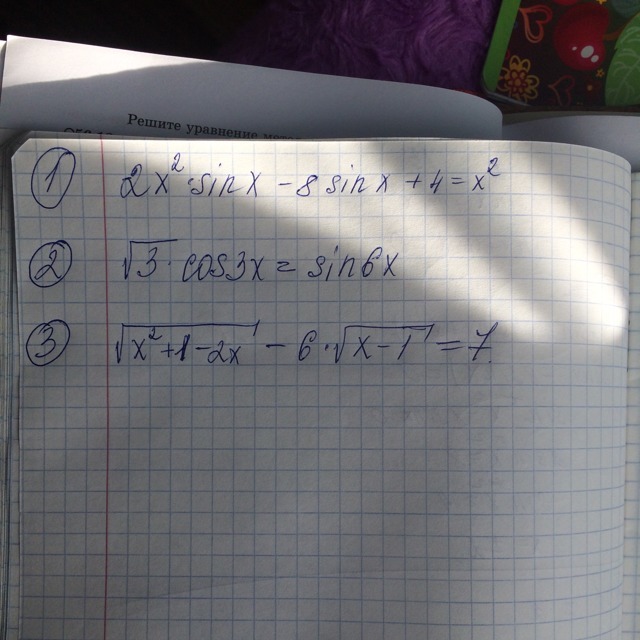 Решите уравнение
① 2x²·sinx − 8sinx + 4 = x²
② √3·cos3x = sin6x
③ √(x²+1−2x) − 6·√(x−1) = 7